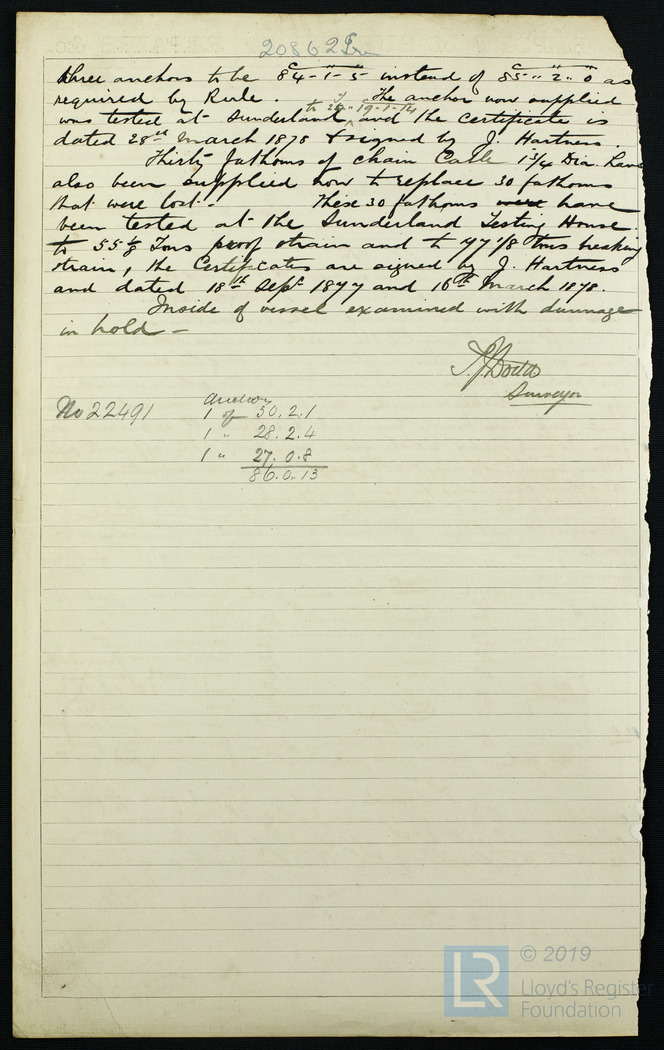 20862
three anchors to be 84-1-5 instead of 85"2"0 as
required by Rule. The anchor now supplied
was tested at Sunderland, and the certificate is
dated 28th March 1878 & signed by J. Hartness.
Thirty fathoms of chain Cable 1 3/4 Dia. have
also been supplied now to replace 30 fathoms
that were lost - These 30 fathoms were have
been tested at the Sunderland Testing House
to 55 1/8 Tons proof strain and to 77 1/8 tons breaking
strain, the Certificates are signed by J. Hartness
and dated 18th Sept 1877 and 16th March 1878.
Inside of vessel examined with dunnage
in hold -
Dodd
Surveyor
No 22491
Anchors
1 of 30.2.1
1 " 28.2.4
1 " 27.0.8
86.0.13
© 2019
LR
Lloyd's Register
Foundation